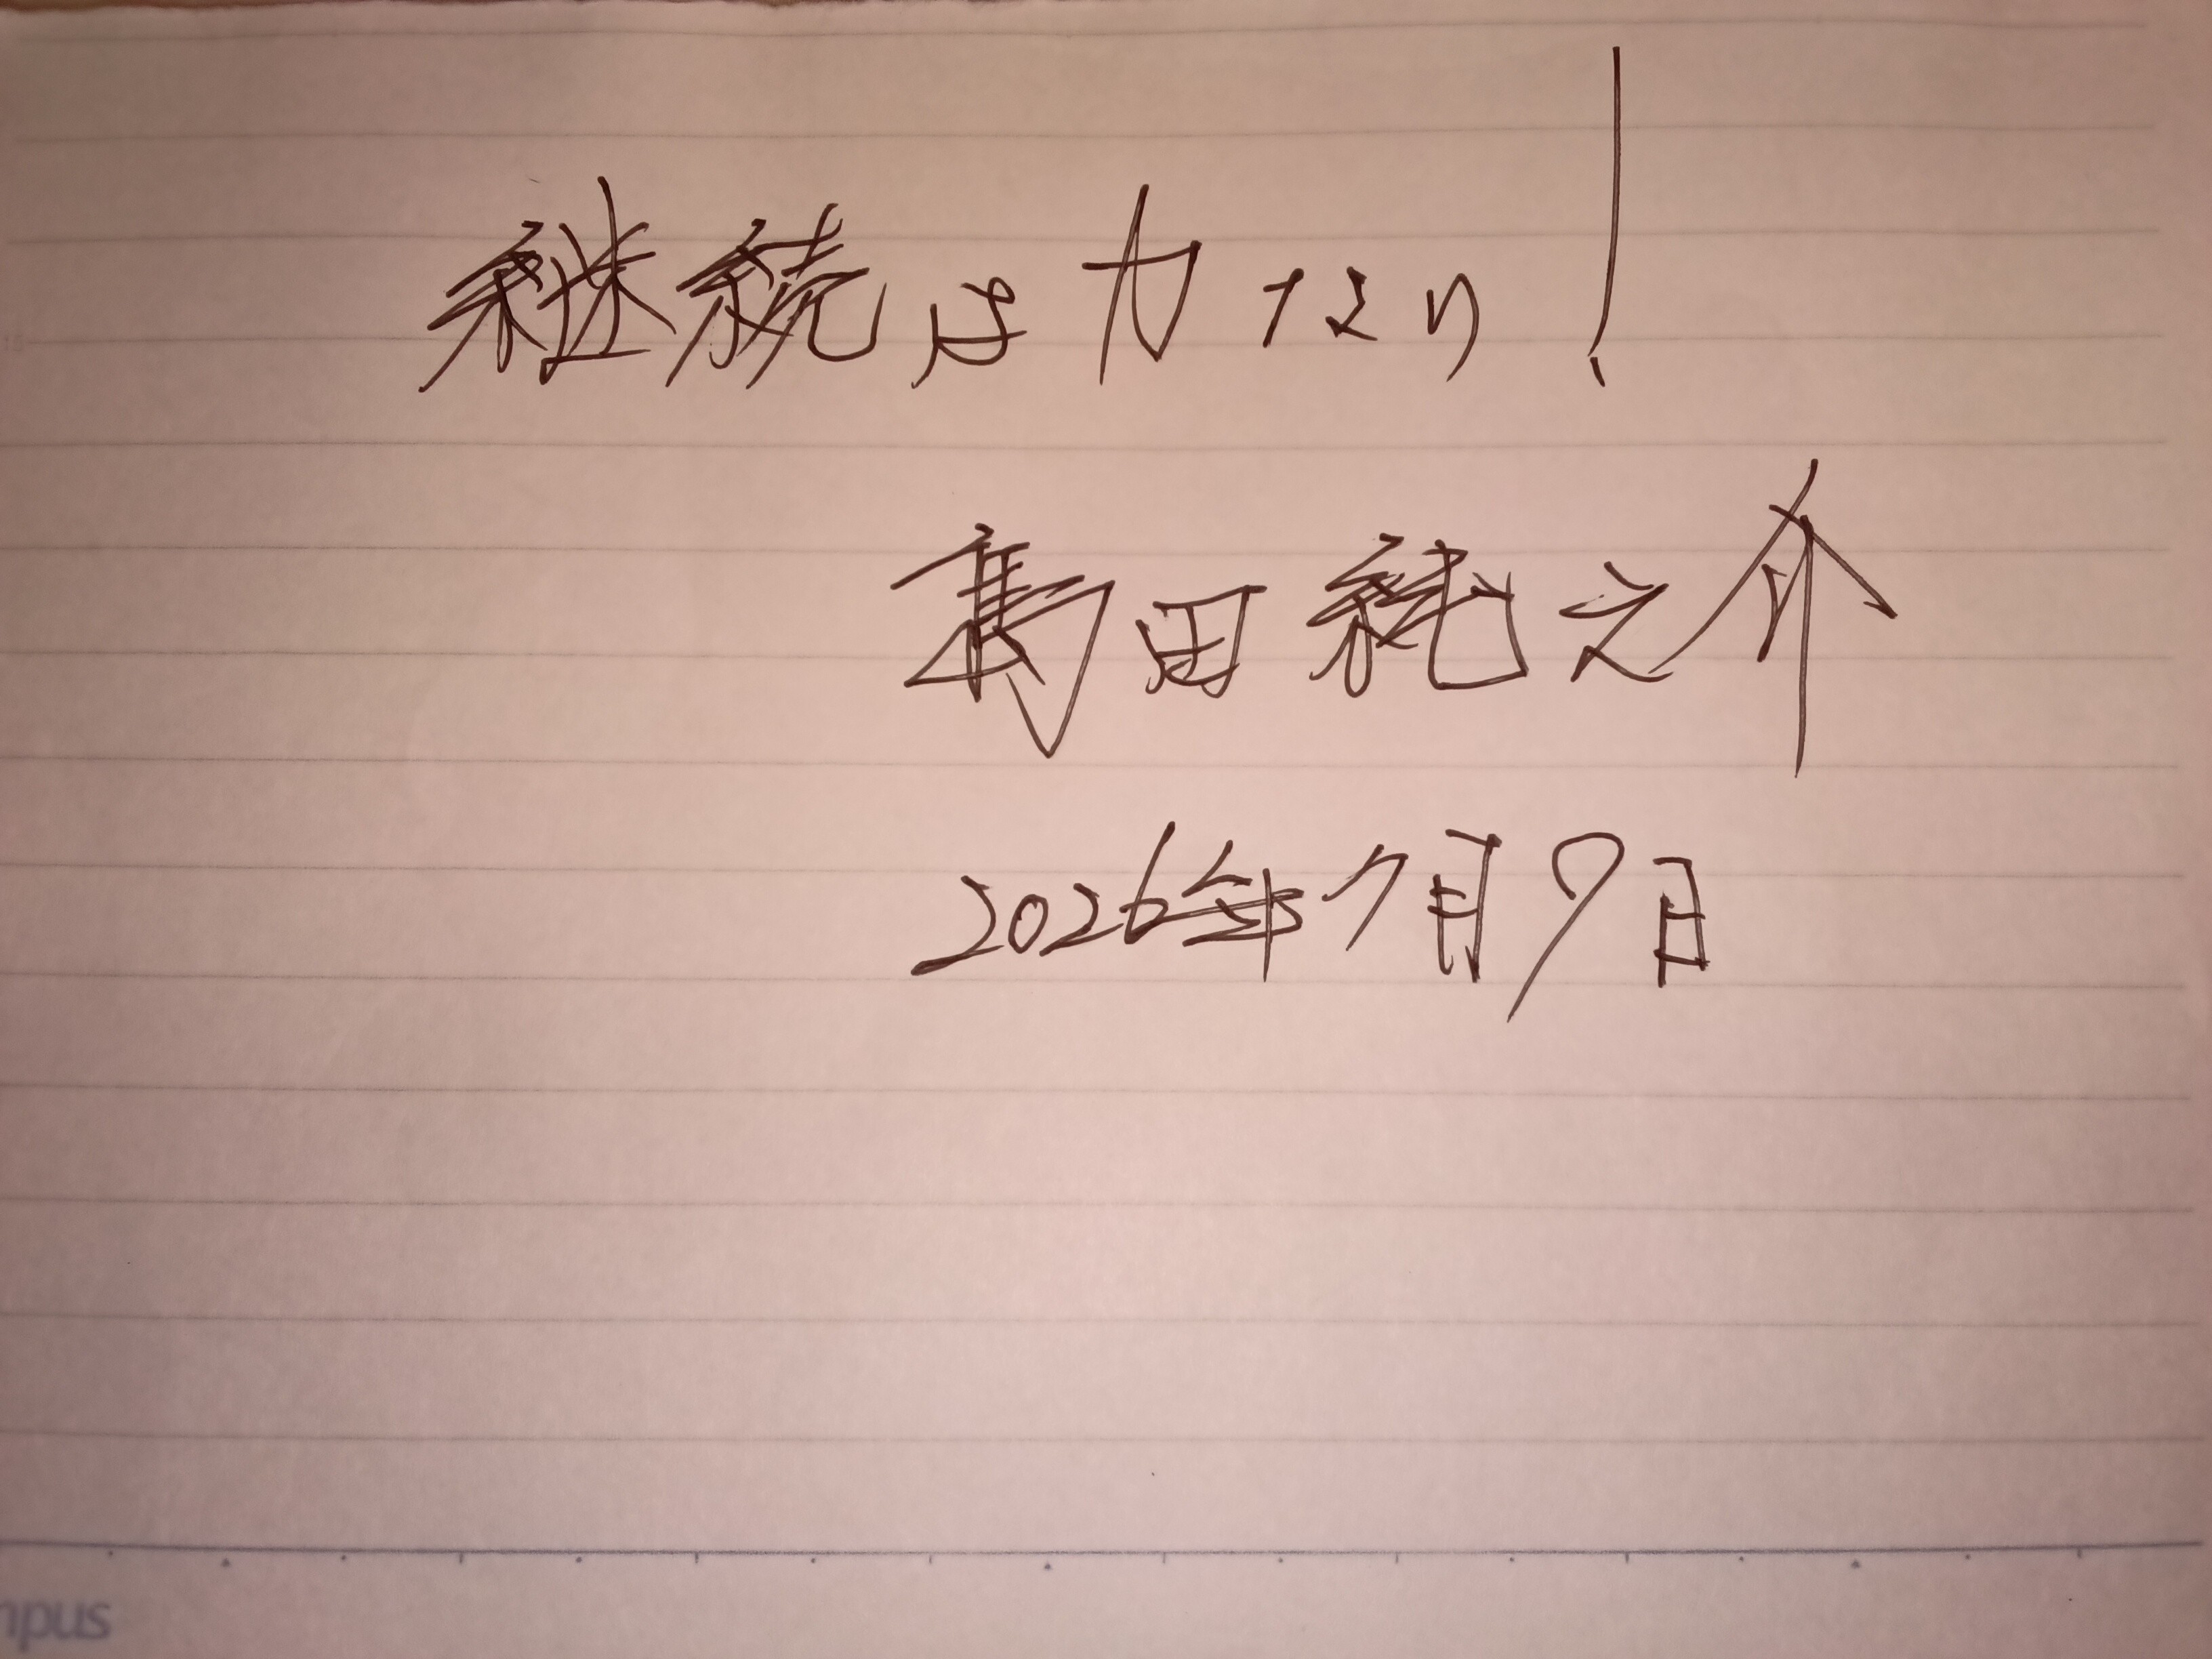 継続は力なり!
島田純之介
2026年7月9日
mpus